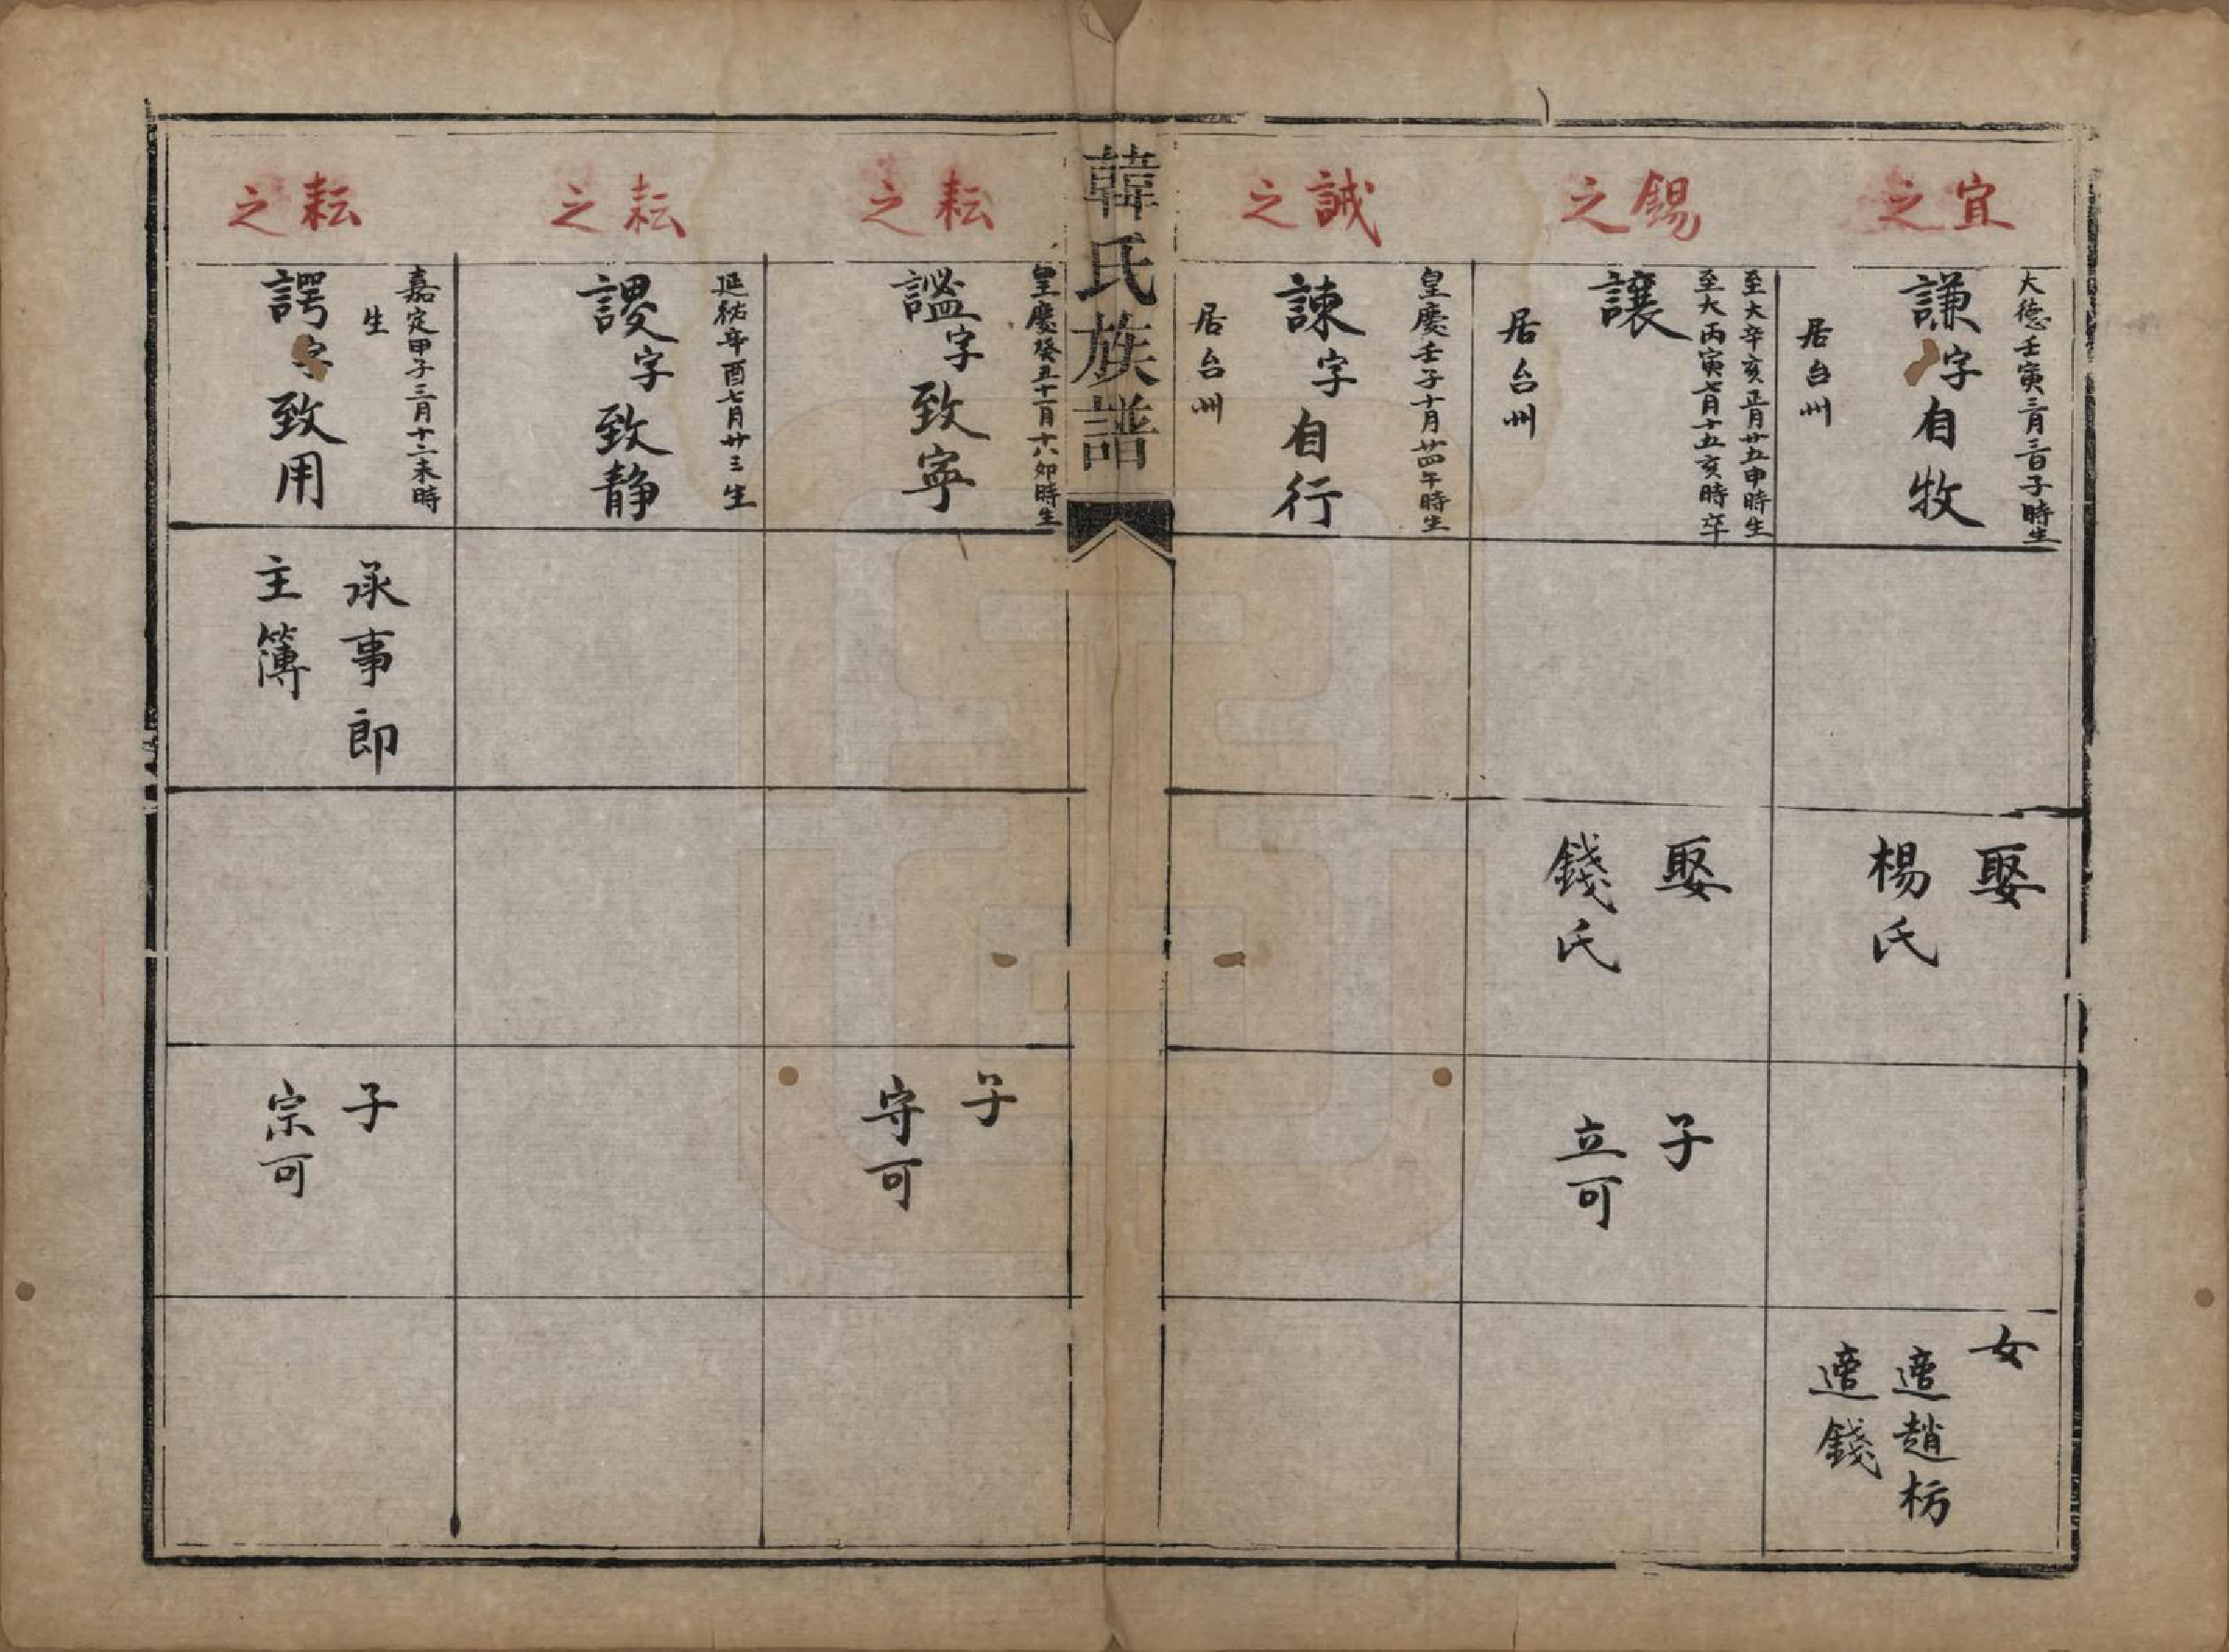 宜之
大德壬寅三月三日子時生
謙字自牧
居台州
娶
楊氏
女
適趙枋
適錢
錫之
至大辛亥正月廿五申時生
至大丙寅七月十五亥時卒
讓
居台州
娶
錢氏
子
立可
誠之
皇慶壬子十月廿四午時生
諫字自行
居台州
韓氏族譜
耘之
皇慶癸丑十一月十六卯時生
謐字致寧
子
守可
耘之
延祐辛酉七月廿三生
謖字致静
耘之
嘉定甲子三月十二未時
生
諤字致用
承事郎
主簿
子
宗可